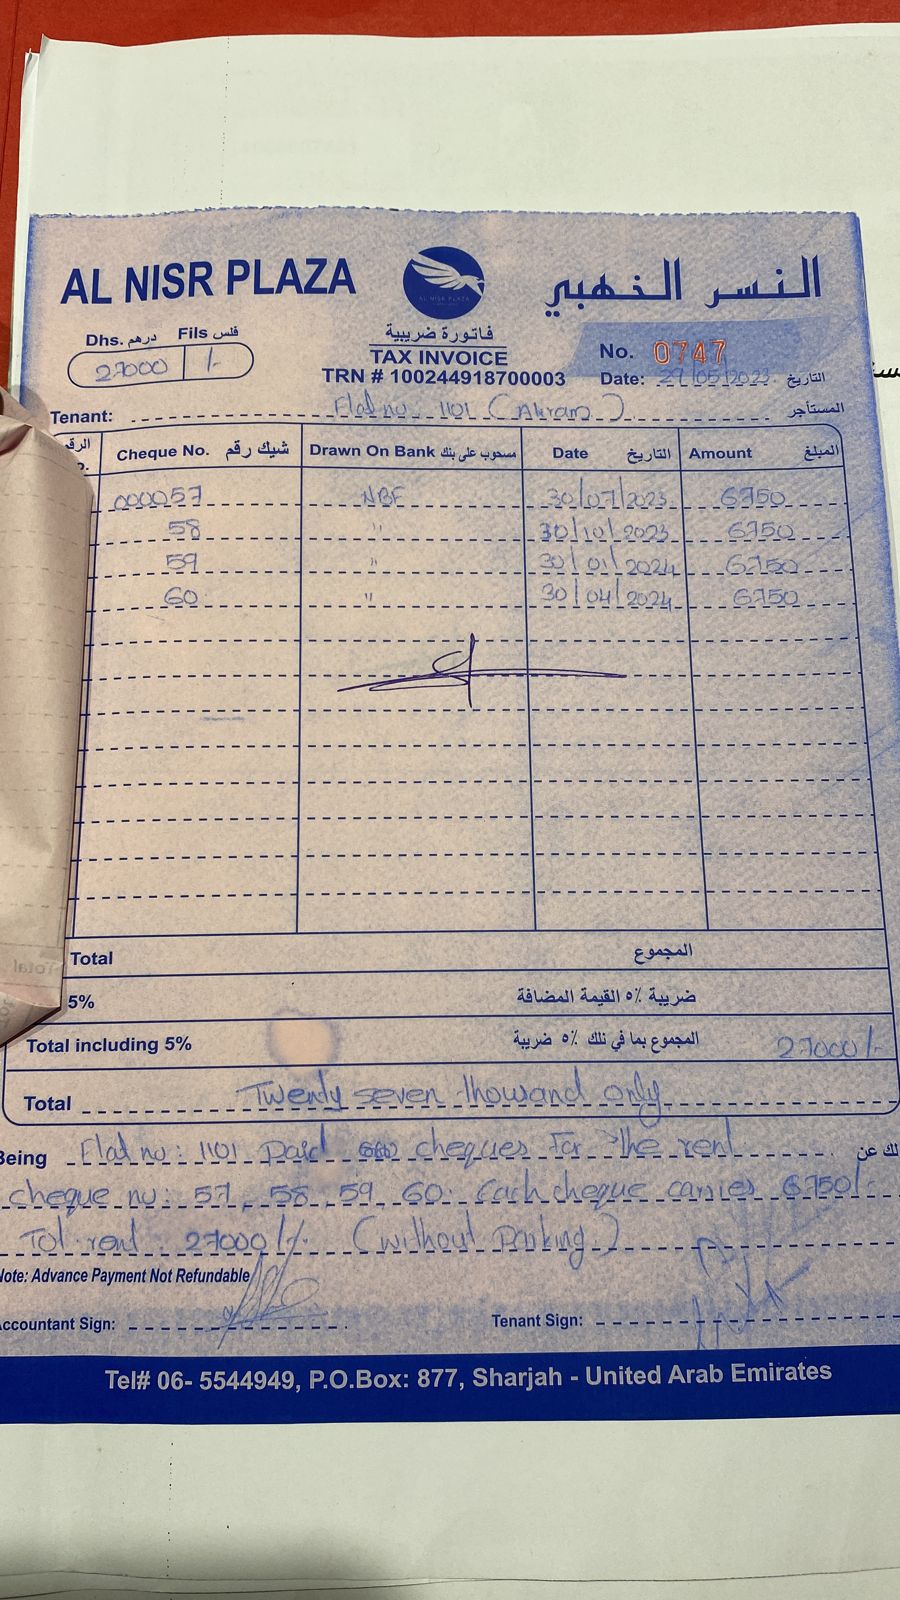 AL NISR PLAZA
AL NISR PLAZA
النسر الذهبي
Dhs. درهم Fils فلس
27000 /-
فاتورة ضريبية
TAX INVOICE
TRN # 100244918700003
No. 0747
Date: 29/05/2023 التاريخ
Tenant: Flat no: 1101 (Akram) المستأجر
الرقم Cheque No. شيك رقم Drawn On Bank مسحوب على بنك Date التاريخ Amount المبلغ
000057 NBF 30/07/2023 6750
58 " 30/10/2023 6750
59 " 30/01/2024 6750
60 " 30/04/2024 6750
Total المجموع
5% ضريبة ٥٪ القيمة المضافة
Total including 5% المجموع بما في ذلك ٥٪ ضريبة 27000/-
Total Twenty seven thousand only
Being Flat no: 1101 Paid cheques For The rent
cheque no: 57, 58, 59, 60. Each cheque carries 6750/-
Tot. rent: 27000/- (without Parking)
Note: Advance Payment Not Refundable
Accountant Sign: Tenant Sign:
Tel# 06- 5544949, P.O.Box: 877, Sharjah - United Arab Emirates